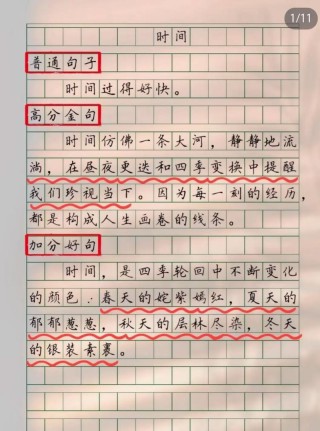 1/11
时间
普通句子
时间过得好快。
高分金句
时间仿佛一条大河，静静地流
淌，在昼夜更迭和四季变换中提醒
我们珍视当下。因为每一刻的经历，
都是构成人生画卷的线条。
加分好句
时间，是四季轮回中不断变化
的颜色：春天的姹紫嫣红，夏天的
郁郁葱葱，秋天的层林尽染，冬天
的银装素裹。